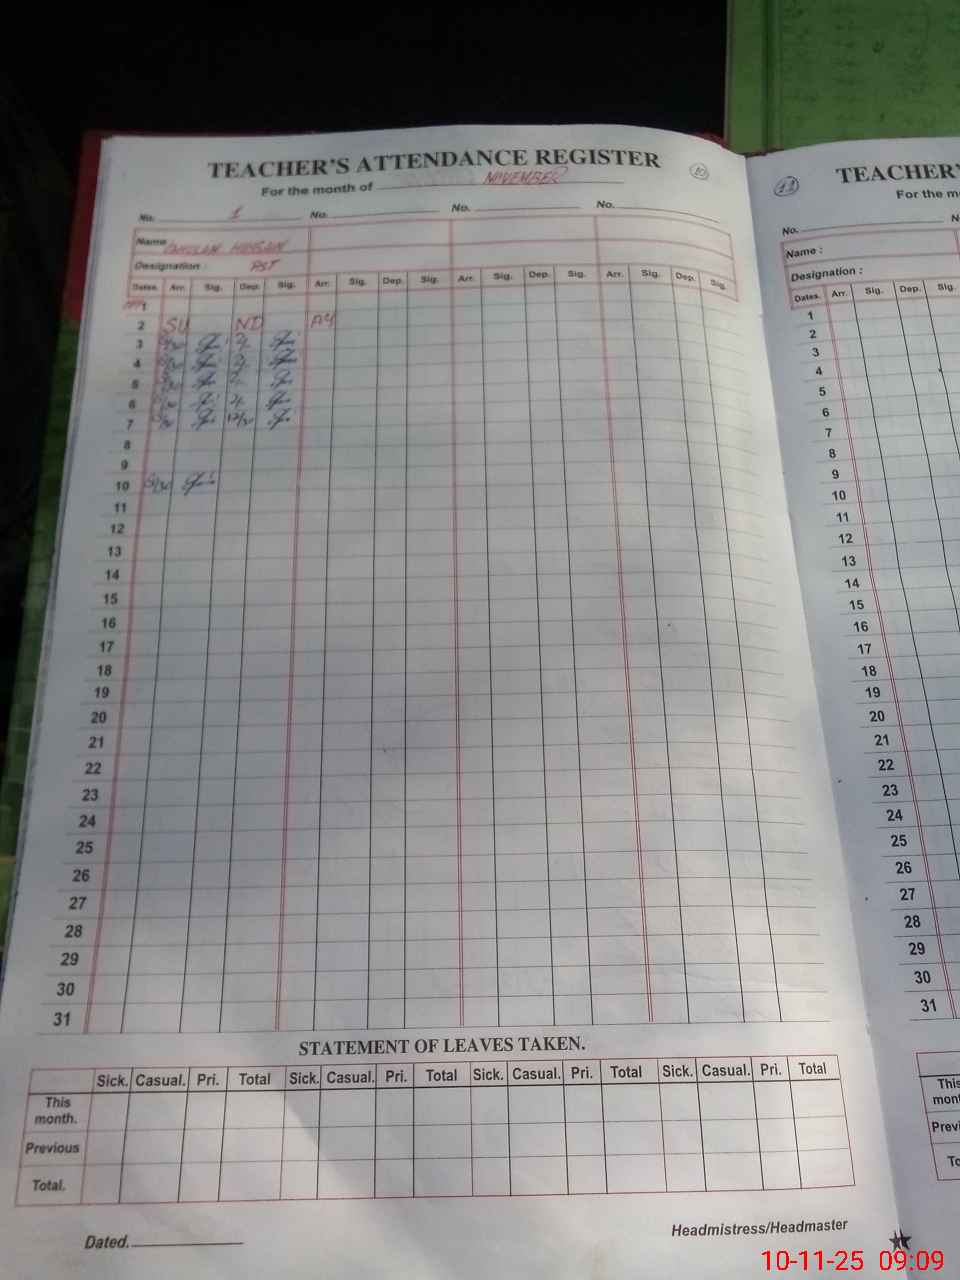 TEACHER'S ATTENDANCE REGISTER
10
For the month of NOVEMBER
No. 1 No. No. No.
Name HUSSAIN
Designation : PST
Dates. Arr. Sig. Dep. Sig. Arr. Sig. Dep. Sig. Arr. Sig. Dep. Sig. Arr. Sig. Dep. Sig.
1
2 SU ND AY
3
4
5
6
7 12/30
8
9
10 8/30
11
12
13
14
15
16
17
18
19
20
21
22
23
24
25
26
27
28
29
30
31
STATEMENT OF LEAVES TAKEN.
Sick. Casual. Pri. Total Sick. Casual. Pri. Total Sick. Casual. Pri. Total Sick. Casual. Pri. Total
This month.
Previous
Total.
Dated. Headmistress/Headmaster
11
TEACHER'
For the m
No. N
Name :
Designation :
Dates. Arr. Sig. Dep. Sig.
1
2
3
4
5
6
7
8
9
10
11
12
13
14
15
16
17
18
19
20
21
22
23
24
25
26
27
28
29
30
31
This
mont
Previ
To
10-11-25 09:09